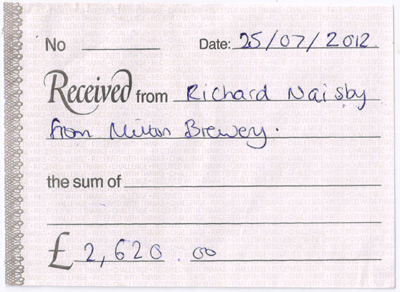 No Date: 25/07/2012
Received from Richard Naisby
from Milton Brewery.
the sum of
£ 2,620.00